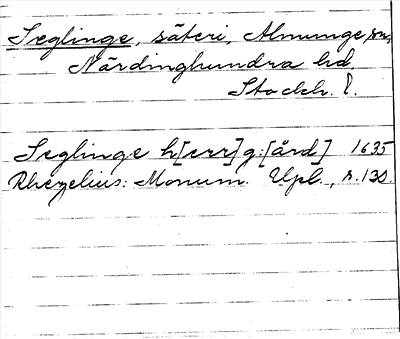 Seglinge, säteri, Almunge sn,
Närdinghundra hd,
Stockh. l.
Seglinge h[err]g:[ård] 1635
Rhezelius: Monum. Upl., s. 130.